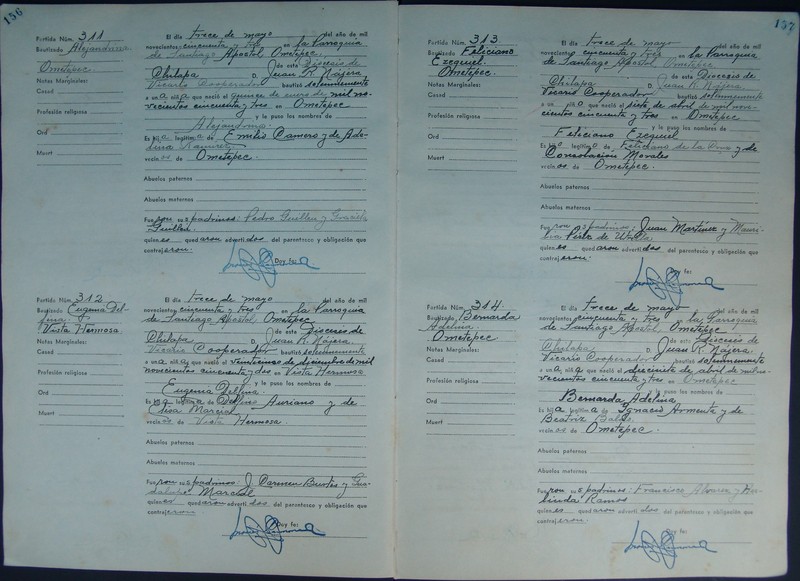 156
Partida Núm. 311
Bautizado Alejandrina
Ometepec
Notas Marginales:
Casad
Profesión religiosa
Ord
Muert
El día trece de mayo del año de mil
novecientos cincuenta y tres en la Parroquia
de Santiago Apóstol Ometepec
de este Diócesis de
Chilapa D. Juan R. Nájera
Vicario Cooperador bautizó solemnemente
a una niña que nació el quince de enero de mil no-
vecientos cincuenta y tres en Ometepec
y le puso los nombres de
Alejandrina
Es hija legítima de Emilio Camero y de Ade-
lina Ramírez
vecinos de Ometepec.
Abuelos paternos
Abuelos maternos
Fueron sus padrinos: Pedro Guillen y
Guillen
quienes quedaron advertidos del parentesco y obligación que
contrajeron.
Doy fe:
Partida Núm. 312
Bautizado Eugenia Del-
fina
Vista Hermosa
Notas Marginales:
Casad
Profesión religiosa
Ord
Muert
El día trece de mayo del año de mil
novecientos cincuenta y tres en la Parroquia
de Santiago Apóstol Ometepec
de este Diócesis de
Chilapa D. Juan R. Nájera
Vicario Cooperador bautizó solemnemente
a una niña que nació el veintinueve de diciembre de mil
novecientos cincuenta y dos en Vista Hermosa
y le puso los nombres de
Eugenia Delfina
Es hija legítima de Delfino Auriano y de
Elisa Marcial
vecinos de Vista Hermosa.
Abuelos paternos
Abuelos maternos
Fueron sus padrinos: J. Carmen Bustos y Gua-
dalupe Marcial
quienes quedaron advertidos del parentesco y obligación que
contrajeron
Doy fe:
157
Partida Núm. 313
Bautizado Feliciano
Ezequiel.
Ometepec.
Notas Marginales:
Casad
Profesión religiosa
Ord
Muert
El día trece de mayo del año de mil
novecientos cincuenta y tres en la Parroquia
de Santiago Apóstol Ometepec
de este Diócesis de
Chilapa D. Juan R. Nájera
Vicario Cooperador bautizó solemnemente
a un niño que nació el siete de abril de mil nove-
cientos cincuenta y tres en Ometepec
y le puso los nombres de
Feliciano Ezequiel
Es hijo legítimo de Feliciano de la Cruz y de
Consolación Morales
vecinos de Ometepec.
Abuelos paternos
Abuelos maternos
Fueron sus padrinos: Juan Martínez y Mauri-
lia Pérez de
quienes quedaron advertidos del parentesco y obligación que
contrajeron.
Doy fe:
Partida Núm. 314
Bautizado Bernarda
Adelina
Ometepec
Notas Marginales:
Casad
Profesión religiosa
Ord
Muert
El día trece de mayo del año de mil
novecientos cincuenta y tres en la Parroquia
de Santiago Apóstol Ometepec
de este Diócesis de
Chilapa D. Juan R. Nájera
Vicario Cooperador bautizó solemnemente
a una niña que nació el diecisiete de abril de mil no-
vecientos cincuenta y tres en Ometepec
y le puso los nombres de
Bernarda Adelina
Es hija legítima de Ignacio Armenta y de
Beatriz
vecinos de Ometepec.
Abuelos paternos
Abuelos maternos
Fueron sus padrinos: Francisco Alvarez y
Ramos
quienes quedaron advertidos del parentesco y obligación que
contrajeron.
Doy fe: